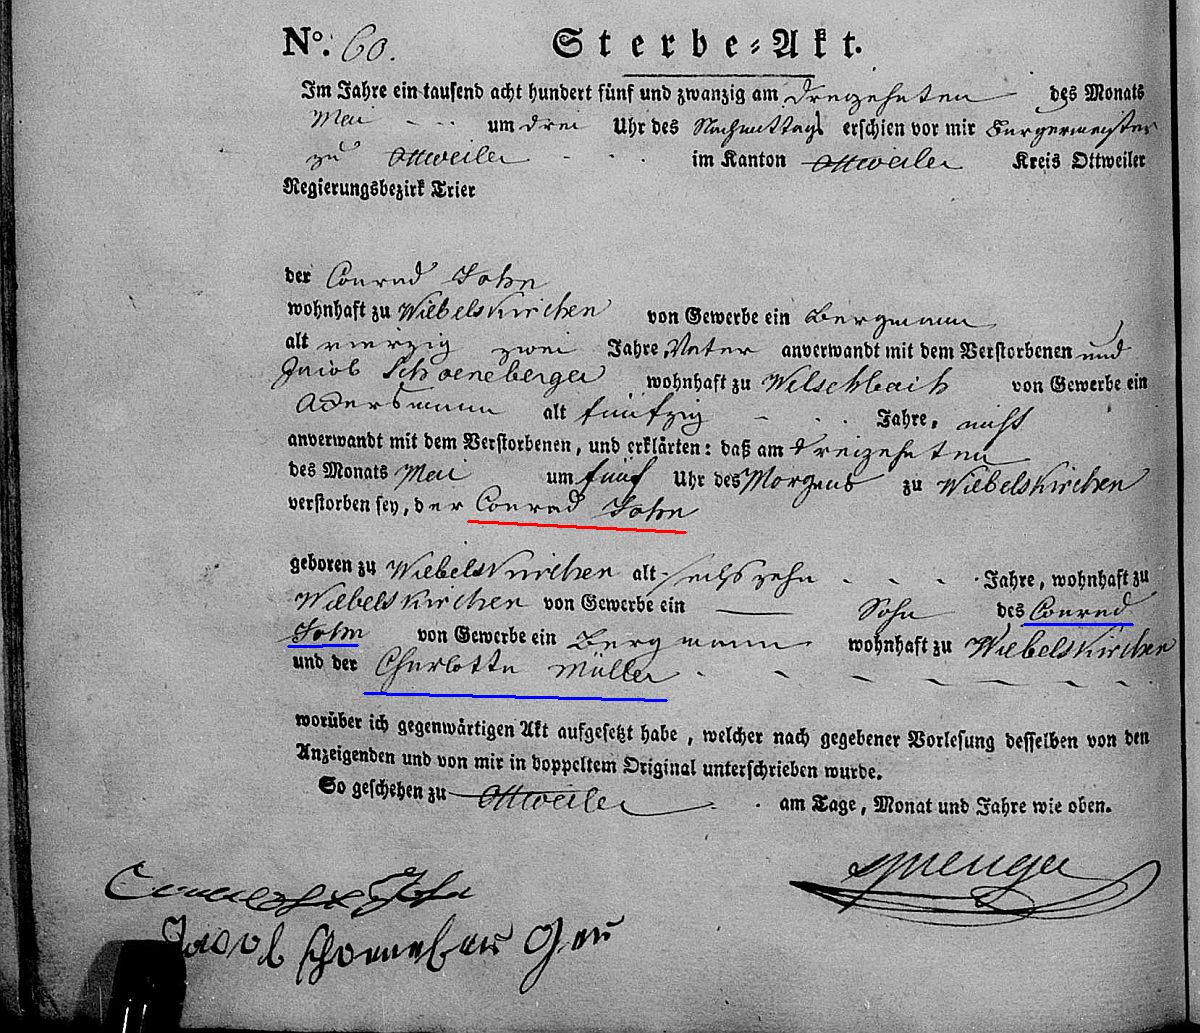 No. 60. Sterbe-Akt.
Im Jahre ein tausend acht hundert fünf und zwanzig am dreyzehnten des Monats
Mai um drei Uhr des Nachmittags erschien vor mir Burgermeister
zu Ottweiler im Kanton Ottweiler Kreis Ottweiler
Regierungsbezirk Trier
der Conrad John
wohnhaft zu Wiebelskirchen von Gewerbe ein Bergmann
alt vierzig zwei Jahre, Vater anverwandt mit dem Verstorbenen und
Jacob Schoeneberger wohnhaft zu Welschbach von Gewerbe ein
Ackersmann alt fünfzig Jahre, nicht
anverwandt mit dem Verstorbenen, und erklärten: daß am dreizehnten
des Monats Mai um fünf Uhr des Morgens zu Wiebelskirchen
verstorben sey, der Conrad John
geboren zu Wiebelskirchen alt sechszehn Jahre, wohnhaft zu
Wiebelskirchen von Gewerbe ein — Sohn des Conrad
John von Gewerbe ein Bergmann wohnhaft zu Wiebelskirchen
und der Charlotta Müller
worüber ich gegenwärtigen Akt aufgesetzt habe, welcher nach gegebener Vorlesung desselben von den
Anzeigenden und von mir in doppeltem Original unterschrieben wurde.
So geschehen zu Ottweiler am Tage, Monat und Jahre wie oben.
John
Jacob